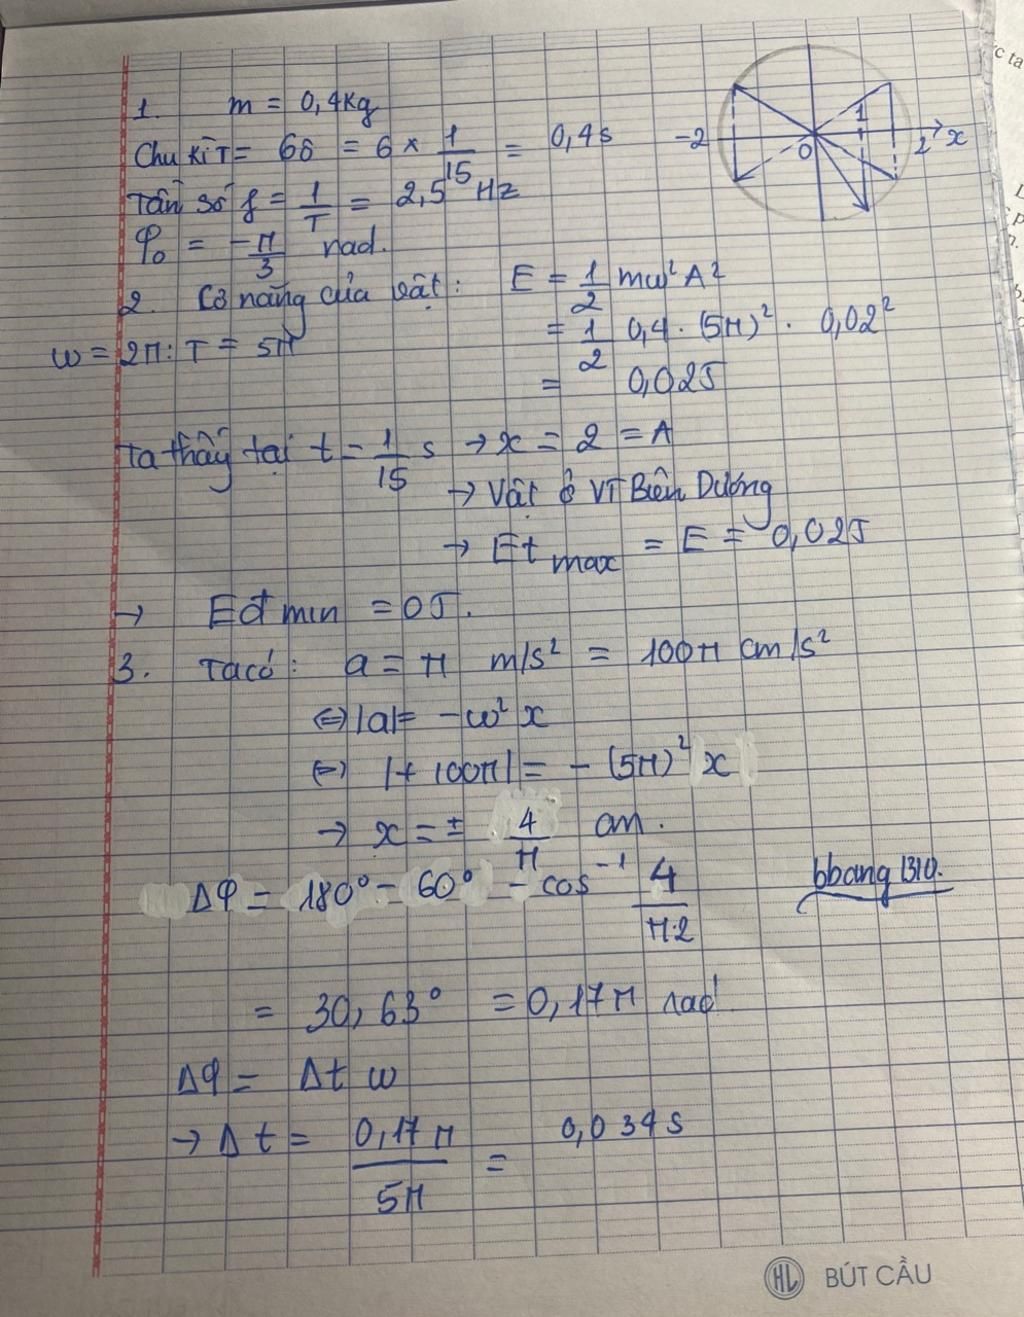 1. m = 0,4kg
Chu kì T = 6δ = 6 × 1/15 = 0,4s
Tần số f = 1/T = 2,5 Hz
φ₀ = -π/3 rad.
-2 O 1 2 x
2. Cơ năng của vật: E = 1/2 mω²A²
= 1/2 0,4 . (5π)² . 0,02²
ω = 2π : T = 5π
= 0,02J
Ta thấy tại t = 1/15 s → x = 2 = A
→ Vật ở VT Biên Dương
→ Et max = E = 0,02J
→ Eđ min = 0J.
3. Ta có: a = π m/s² = 100π cm/s²
⇔ |a| = -ω²x
⇔ |+ 100π| = - (5π)² x
→ x = ± 4/π cm.
Δφ = 180° - 60° - cos⁻¹ 4/π.2
bbang 1310.
= 30,63° = 0,17π rad
Δφ = Δt ω
→ Δt = 0,17π/5π = 0,034s
HL BÚT CẦU